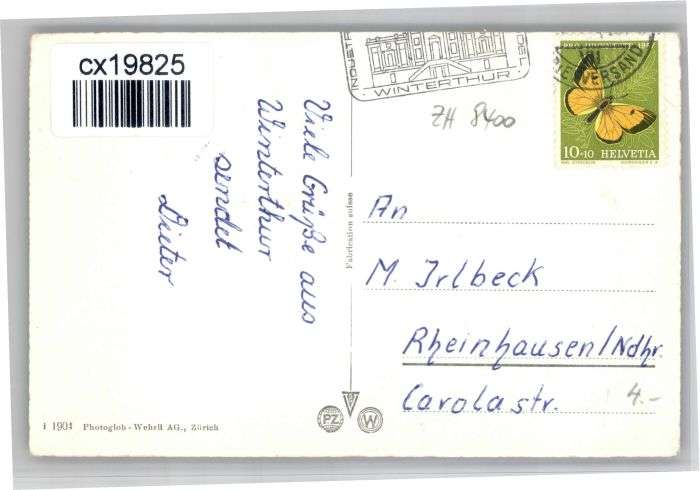 cx19825
WINTERTHUR
VERSAND
PRO JUVENTUTE
10+10 HELVETIA
ZH 8400
Viele Grüße aus
Winterthur
sendet
Dieter
Fabrication suisse
An
M. Irlbeck
Rheinhausen/Ndhr.
Carolastr.
4.-
PZ W
i 1904 Photoglob-Wehrli AG., Zürich